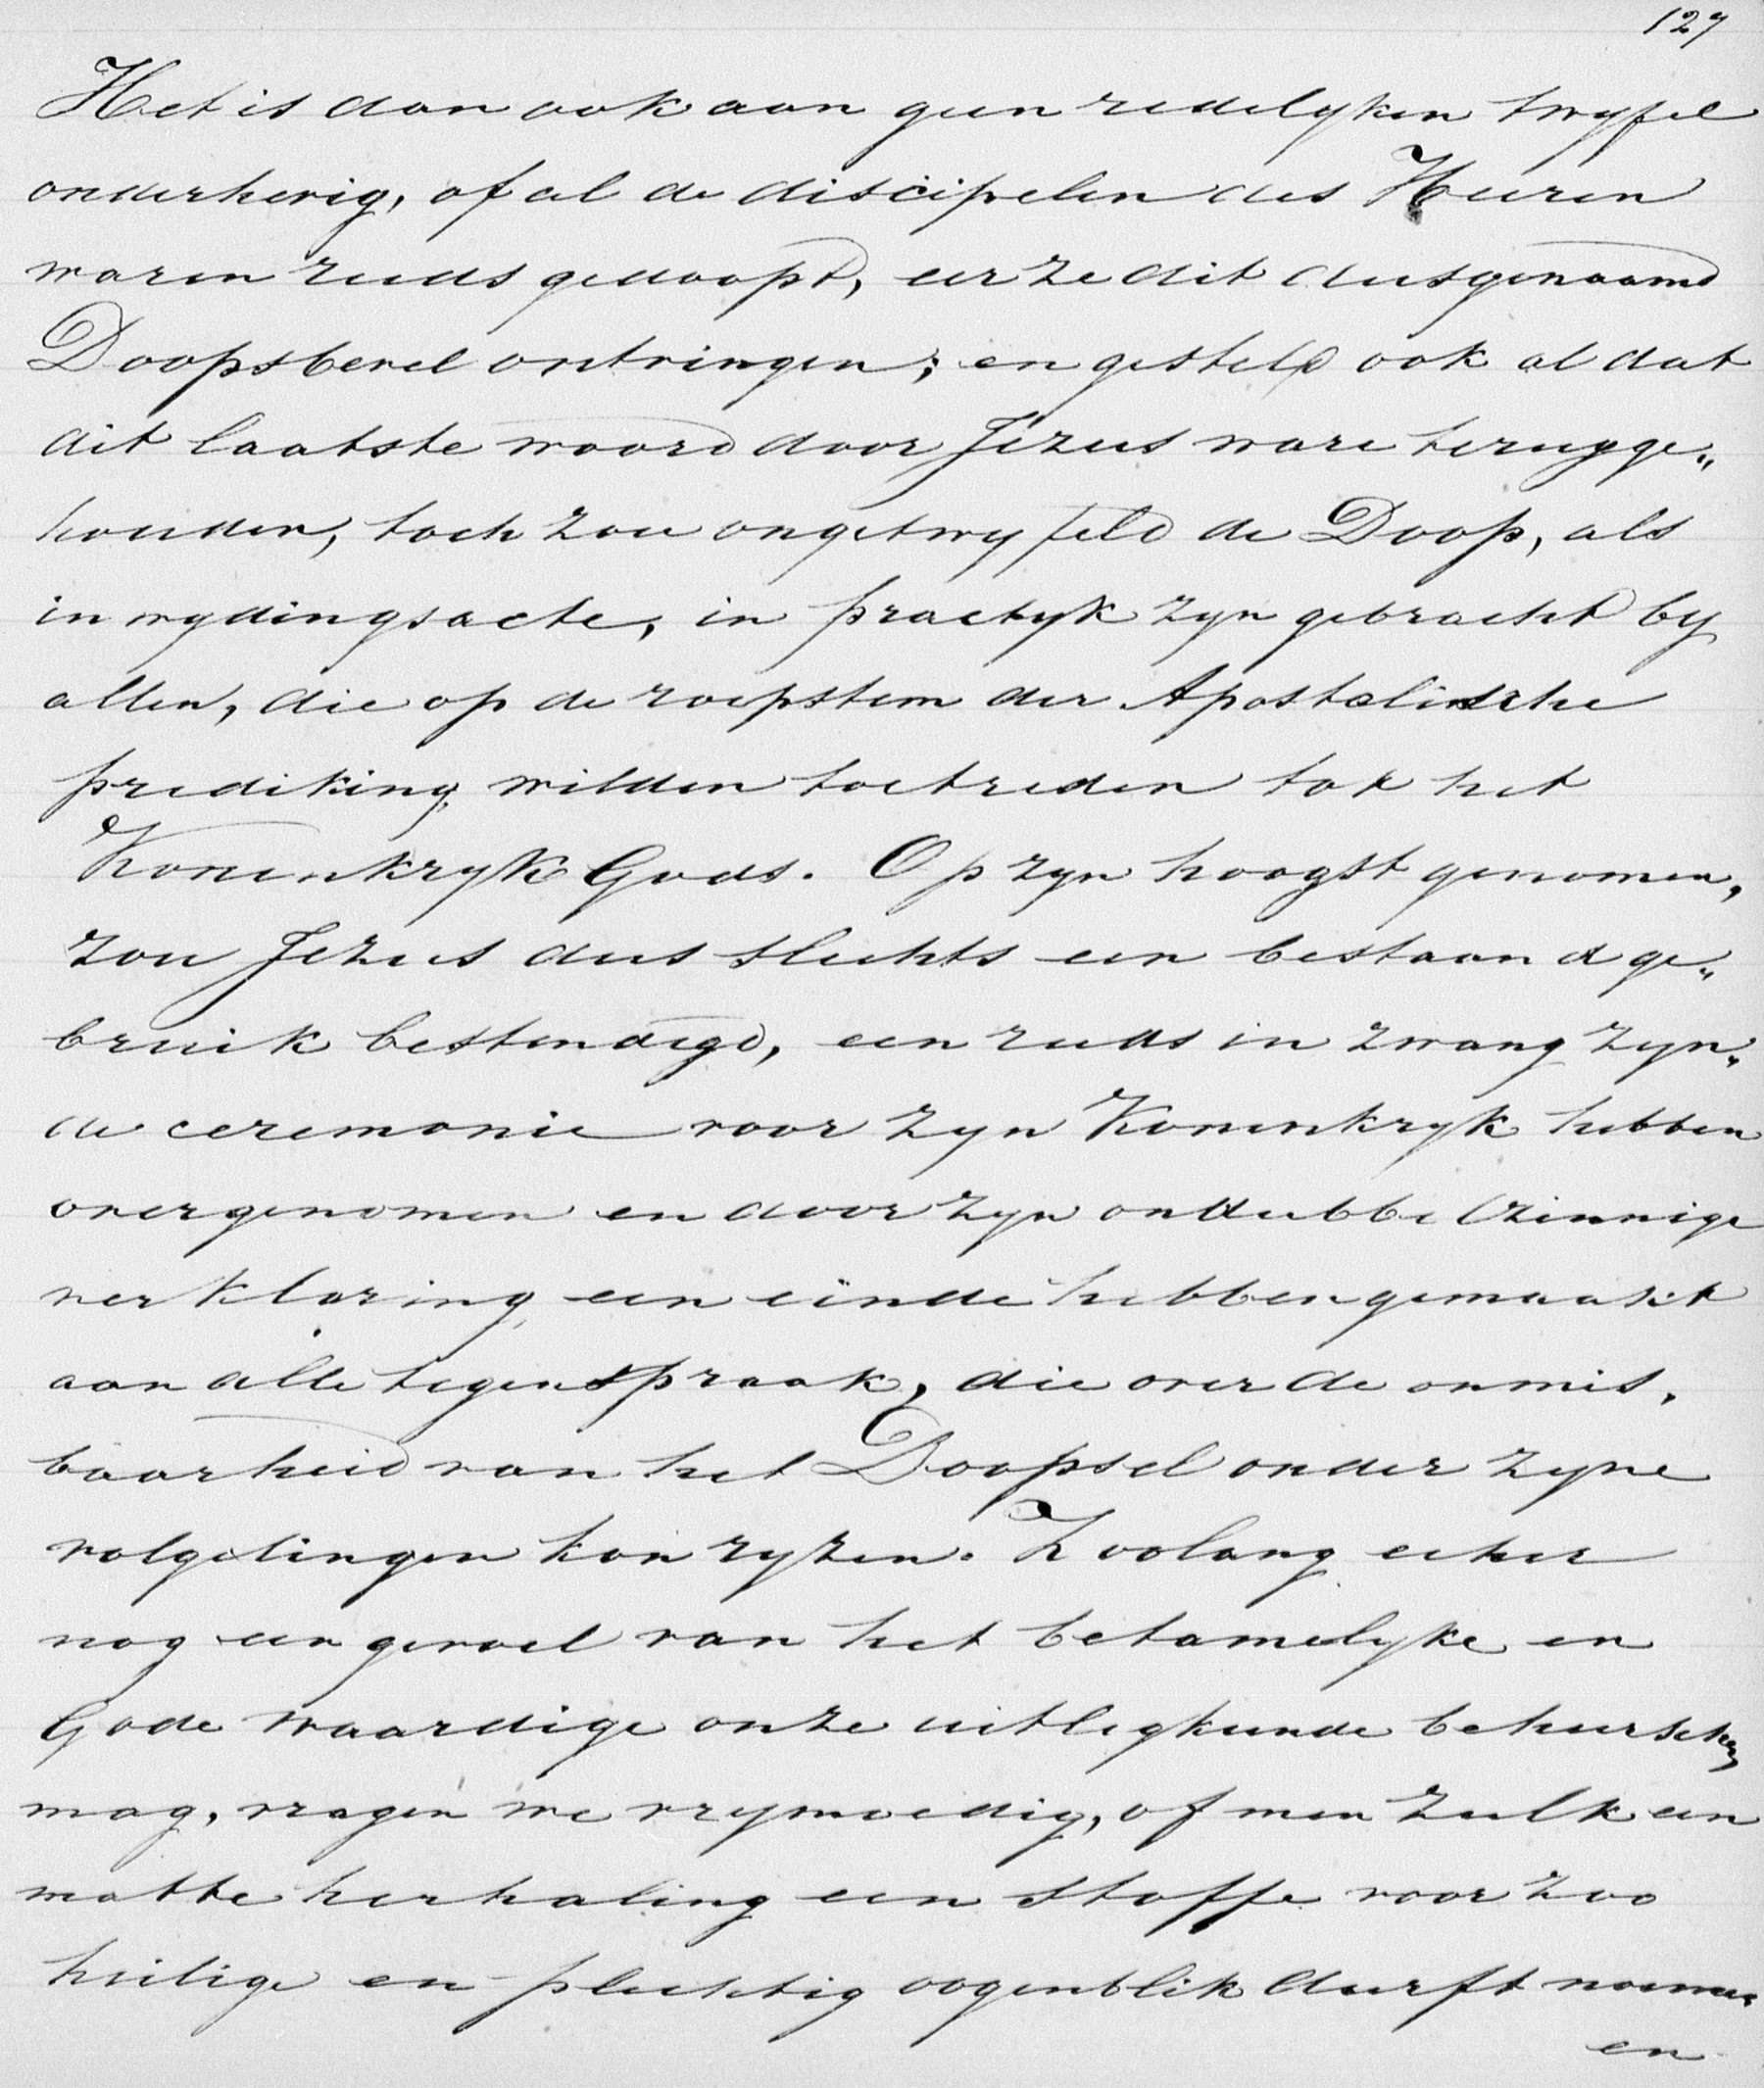 127
Het is dan ook aan geen redelyken twyfel
onderhevig, of al de discipelen des Heeren
waren reeds gedoopt, eer ze dit dusgenaamd
Doopsbevel ontvingen; en gesteld ook al dat
dit laatste woord door Jezus ware terugge„
houden, toch zou ongetwyfeld de Doop, als
inwydingsacte, in practyk zyn gebracht by
allen, die op de roepstem der Apostolische
prediking wilden toetreden tot het
Koninkryk Gods. Op zyn hoogst genomen,
zou Jezus dus slechts een bestaand ge„
bruik bestendigd, een reeds in zwang zyn„
de ceremonie voor zyn Koninkryk hebben
overgenomen en door zyn ondubbelzinnige
verklaring een einde hebben gemaakt
aan alle tegenspraak, die over de onmis„
baarheid van het Doopsel onder zyne
volgelingen kon ryzen. Zoolang echer
nog een gevoel van het betamelyke en
Gode waardige onze uitlegkunde beheerschen
mag, vragen we vrymoedig, of men zulk een
matte herhaling een stoffe voor zoo
heilige en plechtig oogenblik durft noemen
en